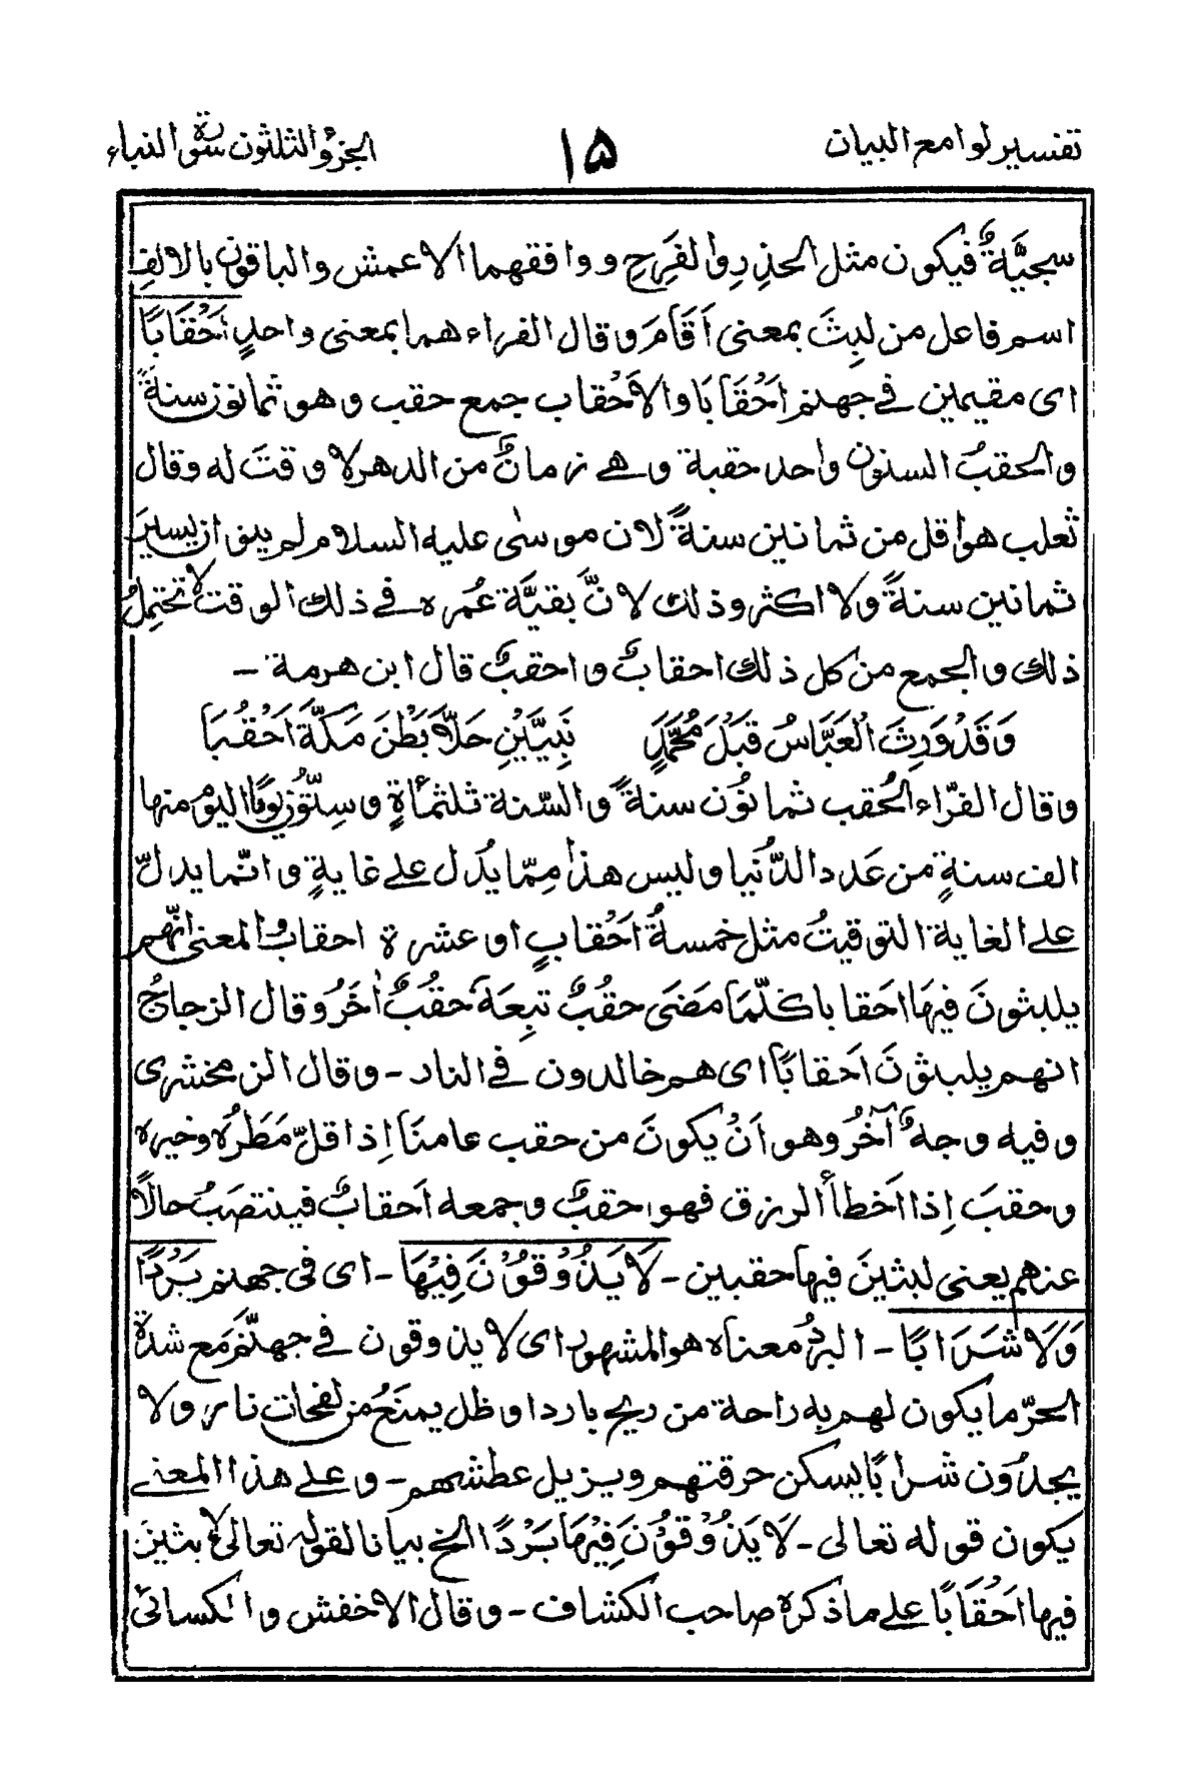 تفسير لوامع البيان ۱۵ الجزؤ الثلثون سورة النباء
سجيَّةٌ فيكون مثل الحذِر والفَرِحِ ووافقهما الاعمش والباقون بالالفِ
اسم فاعل من لبِثَ بمعنى اَقَامَ وقال الفراء هما بمعنى واحدٍ اَحْقَابًا
اى مقيمين في جهنم اَحْقَابًا والاَحْقاب جمع حقب وهو ثمانون سنةً
والحقبُ السنون واحد حقبة وهي زمانٌ من الدهر لا وقتَ له وقال
ثعلب هو اقل من ثمانين سنةً لان موسٰى عليه السلام لم ينو ان يسيرَ
ثمانين سنةً ولا اكثر وذلك لانَّ بقيَّة عُمره في ذلك الوقت لا تحتمِلُ
ذلك والجمع من كل ذلك احقابٌ واحقبٌ قال ابن هرمة -
وَقَدْ وَرِثَ الْعَبَّاسُ قَبْلَ مُحَمَّدٍ نَبِيَّيْنِ حَلَّا بَطْنَ مَكَّةَ اَحْقُبَا
وقال الفرّاء الحُقب ثمانوُن سنةً والسّنة ثلثمأةٍ وسِتّوُن يومًا اليوْمُ منها
الف سنةٍ من عَدد الدُّنيا وليس هذا مِمّا يدُل علي غايةٍ وانّما يدلّ
علي الغاية التوقيتُ مثل خمسةُ اَحْقابٍ او عشرة احقاب والمعنى انّهم
يلبثونَ فيهَا احَقابا كلّمَا مَضَى حقُبٌ تبِعَهُ حقُبٌ اٰخَرُ وقال الزجاجُ
انهم يلبثوْنَ اَحقابًا اى هم خالدون في النار - وقال الزمخشرى
وفيه وجهٌ آخَرُ وهو اَنْ يكونَ من حقب عامنَا اِذا قلّ مَطَرُه وخيره
وحقبَ اِذا اَخطأ الرزق فهو حقبٌ وجمعه اَحقابٌ فينتصَبُ حالًا
عنهم يعنى لبثينَ فيها حقبين - لَا يَذُوْقُوْنَ فِيْهَا - اى فى جهنم بَرْدًا
وَلَا شَرَابًا - البردُ معناه هو المشهور اى لا يذوقون في جهنّم مَع شدة
الحرّ ما يكون لهم به راحة من ريح بارد او ظل يمنَعُ من لفحات نار ولا
يجدُون شرابًا يسكن حرقتهم ويزيل عطشهم - وعلي هذا المعنى
يكون قوله تعالى - لَا يَذُوْقُوْنَ فِيْهَا بَرْدًا الخ بيانا لقوله تعالى لابثين
فيها اَحْقَابًا علي ما ذكره صاحب الكشاف - وقال الاخفش والكسائى